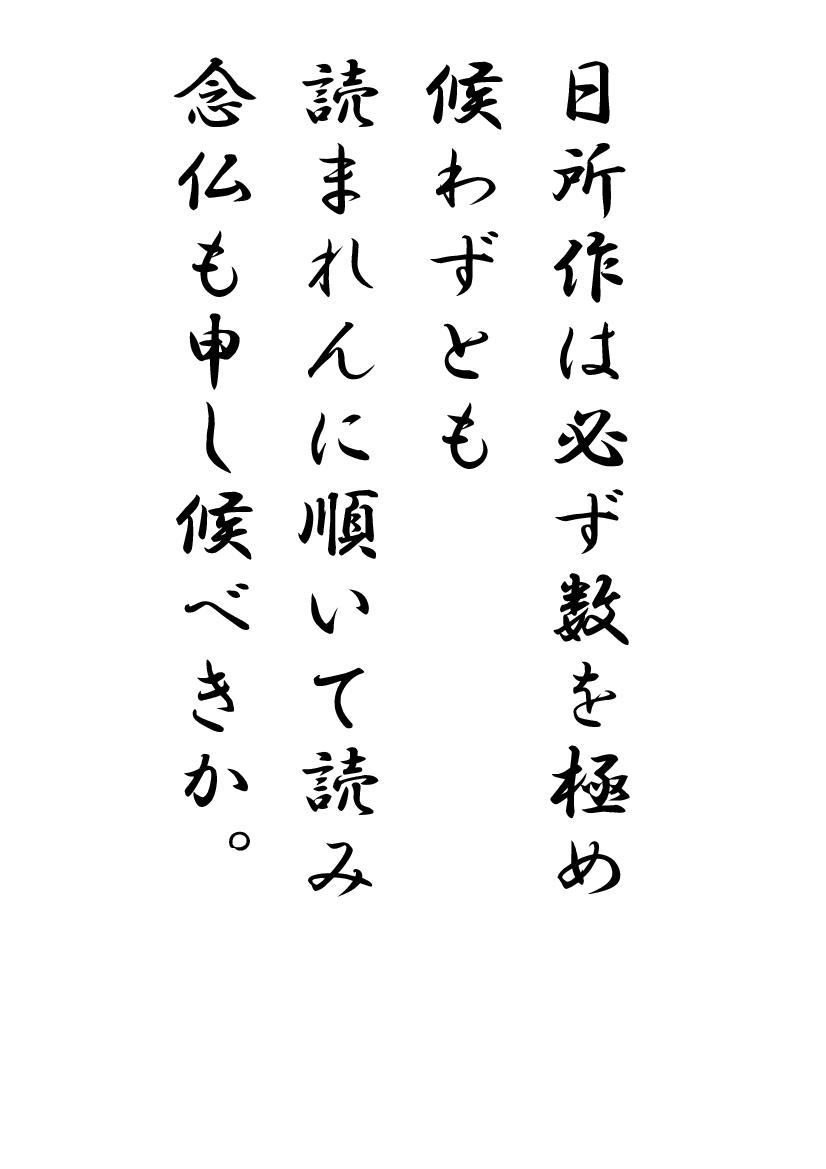 日所作は必ず数を極め
候わずとも
読まれんに順いて読み
念仏も申し候べきか。